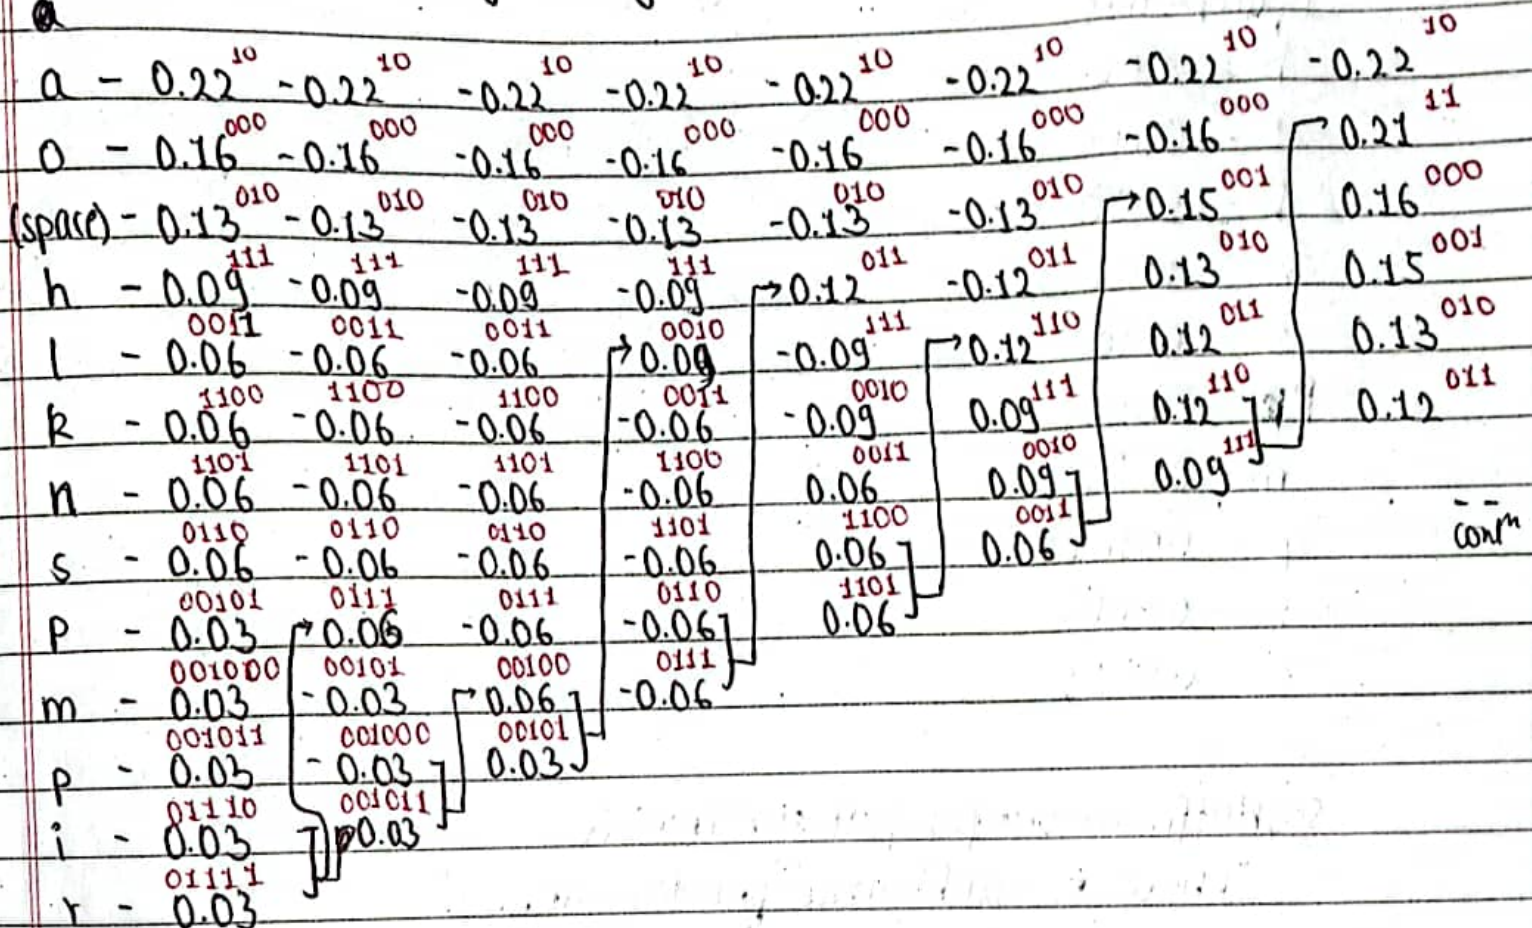 a - 0.22 10 - 0.22 10 - 0.22 10 - 0.22 10 - 0.22 10 - 0.22 10 - 0.22 10 - 0.22 10
o - 0.16 000 - 0.16 000 - 0.16 000 - 0.16 000 - 0.16 000 - 0.16 000 - 0.16 000 0.21 11
(space) - 0.13 010 - 0.13 010 - 0.13 010 - 0.13 010 - 0.13 010 - 0.13 010 0.15 001 0.16 000
h - 0.09 111 - 0.09 111 - 0.09 111 - 0.09 111 0.12 011 - 0.12 011 0.13 010 0.15 001
l - 0.06 0011 - 0.06 0011 - 0.06 0011 0.09 0010 - 0.09 111 0.12 110 0.12 011 0.13 010
k - 0.06 1100 - 0.06 1100 - 0.06 1100 - 0.06 0011 - 0.09 0010 0.09 111 0.12 110 0.12 011
n - 0.06 1101 - 0.06 1101 - 0.06 1101 - 0.06 1100 0.06 0011 0.09 0010 0.09 111
s - 0.06 0110 - 0.06 0110 - 0.06 0110 - 0.06 1101 0.06 1100 0.06 0011
p - 0.03 00101 0.06 0111 - 0.06 0111 - 0.06 0110 0.06 1101
m - 0.03 001000 - 0.03 00101 0.06 00100 - 0.06 0111
p - 0.03 001011 - 0.03 001000 0.03 00101
i - 0.03 01110 0.03 001011
r - 0.03 01111